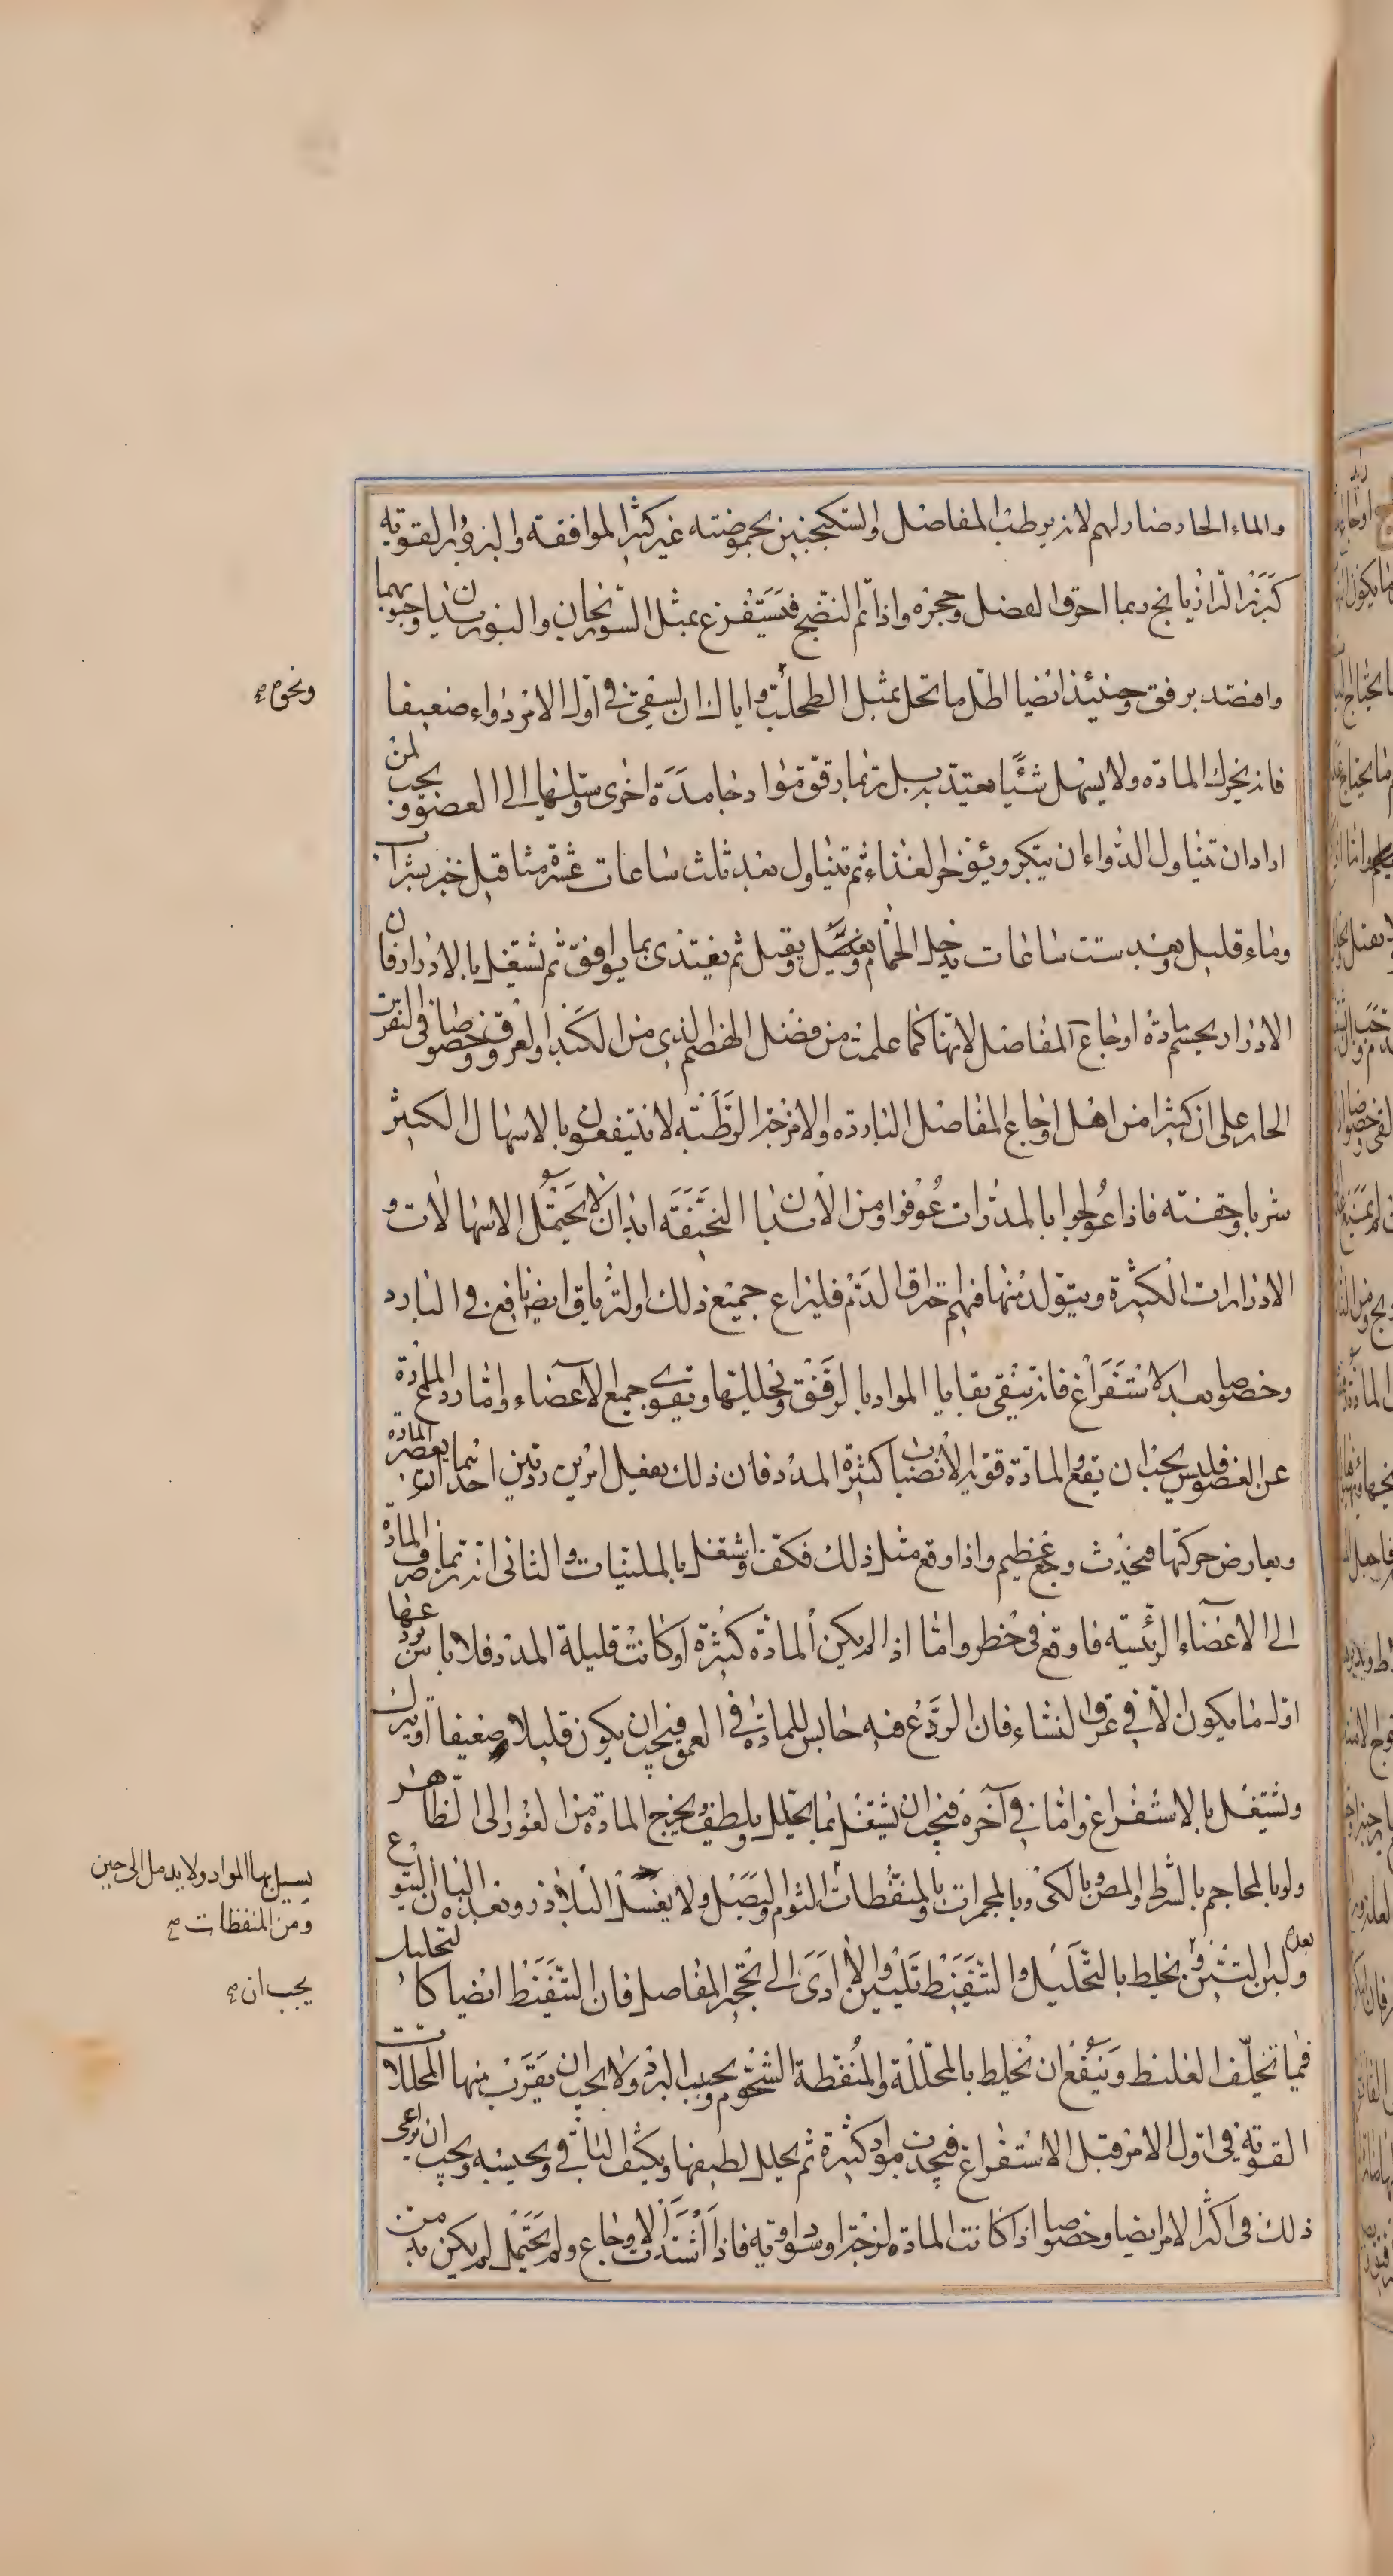 والماء الحار ضار لهم لانه يرطب المفاصل والسكنجبين بحموضته غير كثير الموافقة والبزور القوية
كبزر الرازيانج ربما احرق الفضل وحجره واذا تم النضج فيستفرغ بمثل السورنجان والبوزيدان وحبوبهما
وافصد برفق وحينئذ ايضا اطل ما تحل بمثل الطحلب واياك ان يسقى في اول الامر دواء ضعيفا
فانه يحرك المادة ولا يسهل شيئا يعتد به بل ربما رقق مواد جامدة اخرى وسيلها الى العضو ويجب لمن
اراد ان يتناول الدواء ان يبكر ويؤخر الغذاء ثم يتناول بعد ثلث ساعات عشرة مثاقيل خبز بشراب
وماء قليل وبعد ست ساعات يدخل الحمام ويغتسل ويقيل ثم يغتذى بما يوافق ثم يشتغل بالادرار فان
الادرار يحسم مادة اوجاع المفاصل لانها كما علمت من فضل الهضم الذى من الكبد والعروق وخصوصا في النقرس
الحار على ان كثيرا من اهل اوجاع المفاصل الباردة والامزجة الرطبة لا ينتفعون بالاسهال الكثير
شربا وحقنته فاذا عولجوا بالمدرات عوفوا ومن الابدان النحيفة ابدان لا يحتمل الاسهالات و
الادرارات الكثيرة ويتولد منها فيهم احتراق الدم فليراع جميع ذلك والترياق ايضا نافع في البارد
وخصوصا بعد الاستفراغ فانه ينقى بقايا المواد بالرفق ويحللها ويقوى جميع الاعضاء واما ردع المادة
عن العضو فليس يجب ان يقع والمادة قوية الانصباب كثيرة المدد فان ذلك يفعل امرين رديين احدهما انه يعصر المادة
ويعارض حركتها فيحدث وجع عظيم واذا وقع مثل ذلك فكف واشتغل بالملينات والثانى انه ربما صرف المادة
الى الاعضاء الرئيسية فاوقع في خطر واما اذا لم يكن المادة كثيرة او كانت قليلة المدد فلا باس بردعها
اول ما يكون الا في عرق النساء فان الردع فيه حابس للمادة في العمق فيجب ان يكون قليلا ضعيفا او يترك
ويشتغل بالاستفراغ واما في آخره فيجب ان يشتغل بما يحلل ويلطف ويخرج المادة من الغور الى الظاهر
ولو بالمحاجم بالشرط والمص وبالكى وبالمحمرات وبالمنفطات الثوم والبصل ولا يعسل البلاذر وبعده البان اليتوع
بعده ولبن التين ويخلط بالتحليل والتنفيط تليين والا ادى الى تحجر المفاصل فان التنفيط ايضا كالتحليل
فيما يخلف الغليظ وينفع ان تخلط بالمحللة والمنفطة الشحوم وحب البرد ولا يجب ان يقرب منها المحللات
القوية في اول الامر قبل الاستفراغ فيجذب مواد كثيرة ثم يحلل لطيفها ويكثف الباقى ويحبسه ويجب ان يراعى
ذلك في اكثر الامر ايضا وخصوصا اذا كانت المادة لزجة او سوداوية فاذا اشتدت الاوجاع ولم يحتمل لم يكن بد من
ونحوه صح
يسيل بها المواد ولا يدمل الى حين
ومن المنفطات صح
يجب ان صح